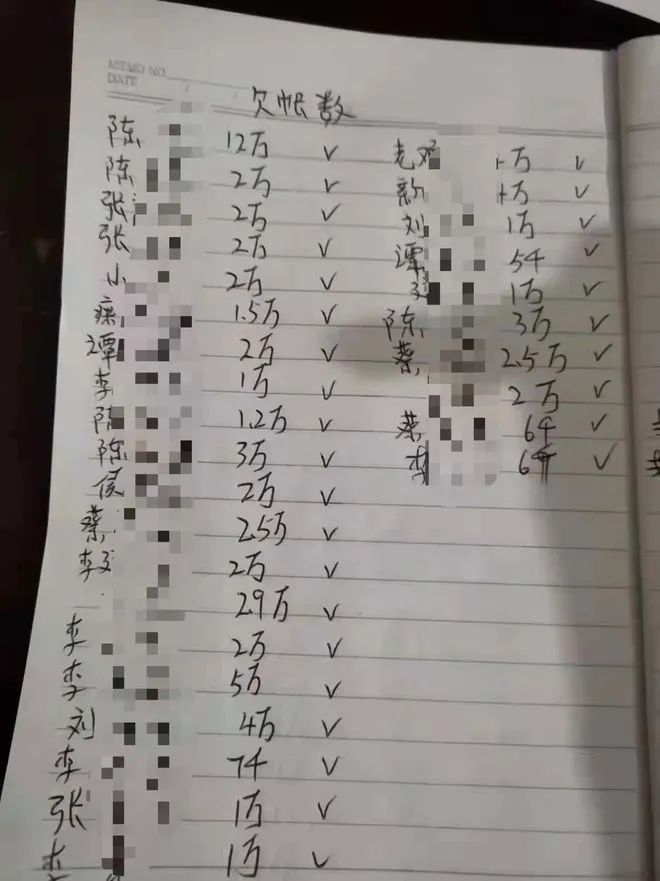 MEMO NO.
DATE
欠帐数
陈 12万 √
陈 2万 √
张 2万 √
张 2万 √
小 2万 √
1.5万 √
谭 2万 √
李 1万 √
陈 1.2万 √
陈 3万 √
侯 2万 √
蔡 2.5万 √
李 2万 √
2.9万 √
李 2万 √
李 5万 √
刘 4万 √
李 7千 √
张 1万 √
李 1万 √
老邓 十万 √
新 十万 √
刘 1万 √
谭 5千 √
1万 √
陈 3万 √
蔡 2.5万 √
2万 √
蔡 6千 √
李 6千 √